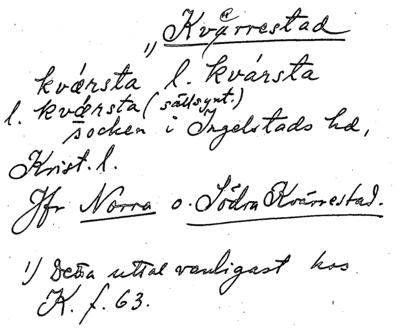 1) Kvärrestad
kvǽrsta l. kvársta
l. kvǽrsta (sällsynt.)
socken i Ingelstads hd,
Krist. l.
Jfr Norra o. Södra Kvärrestad.
1) Detta uttal vanligast hos
K. f. 63.